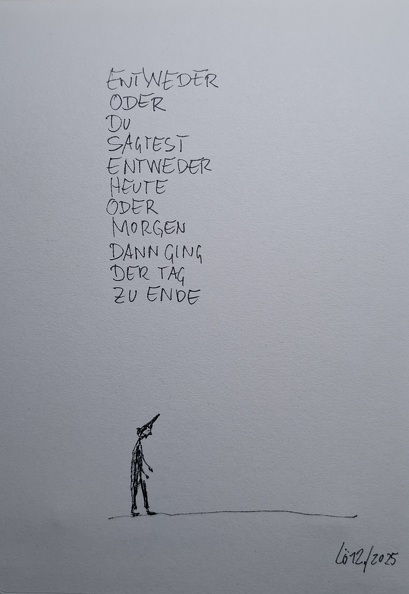 ENTWEDER
ODER
DU
SAGTEST
ENTWEDER
HEUTE
ODER
MORGEN
DANN GING
DER TAG
ZU ENDE
Lö 12/2025